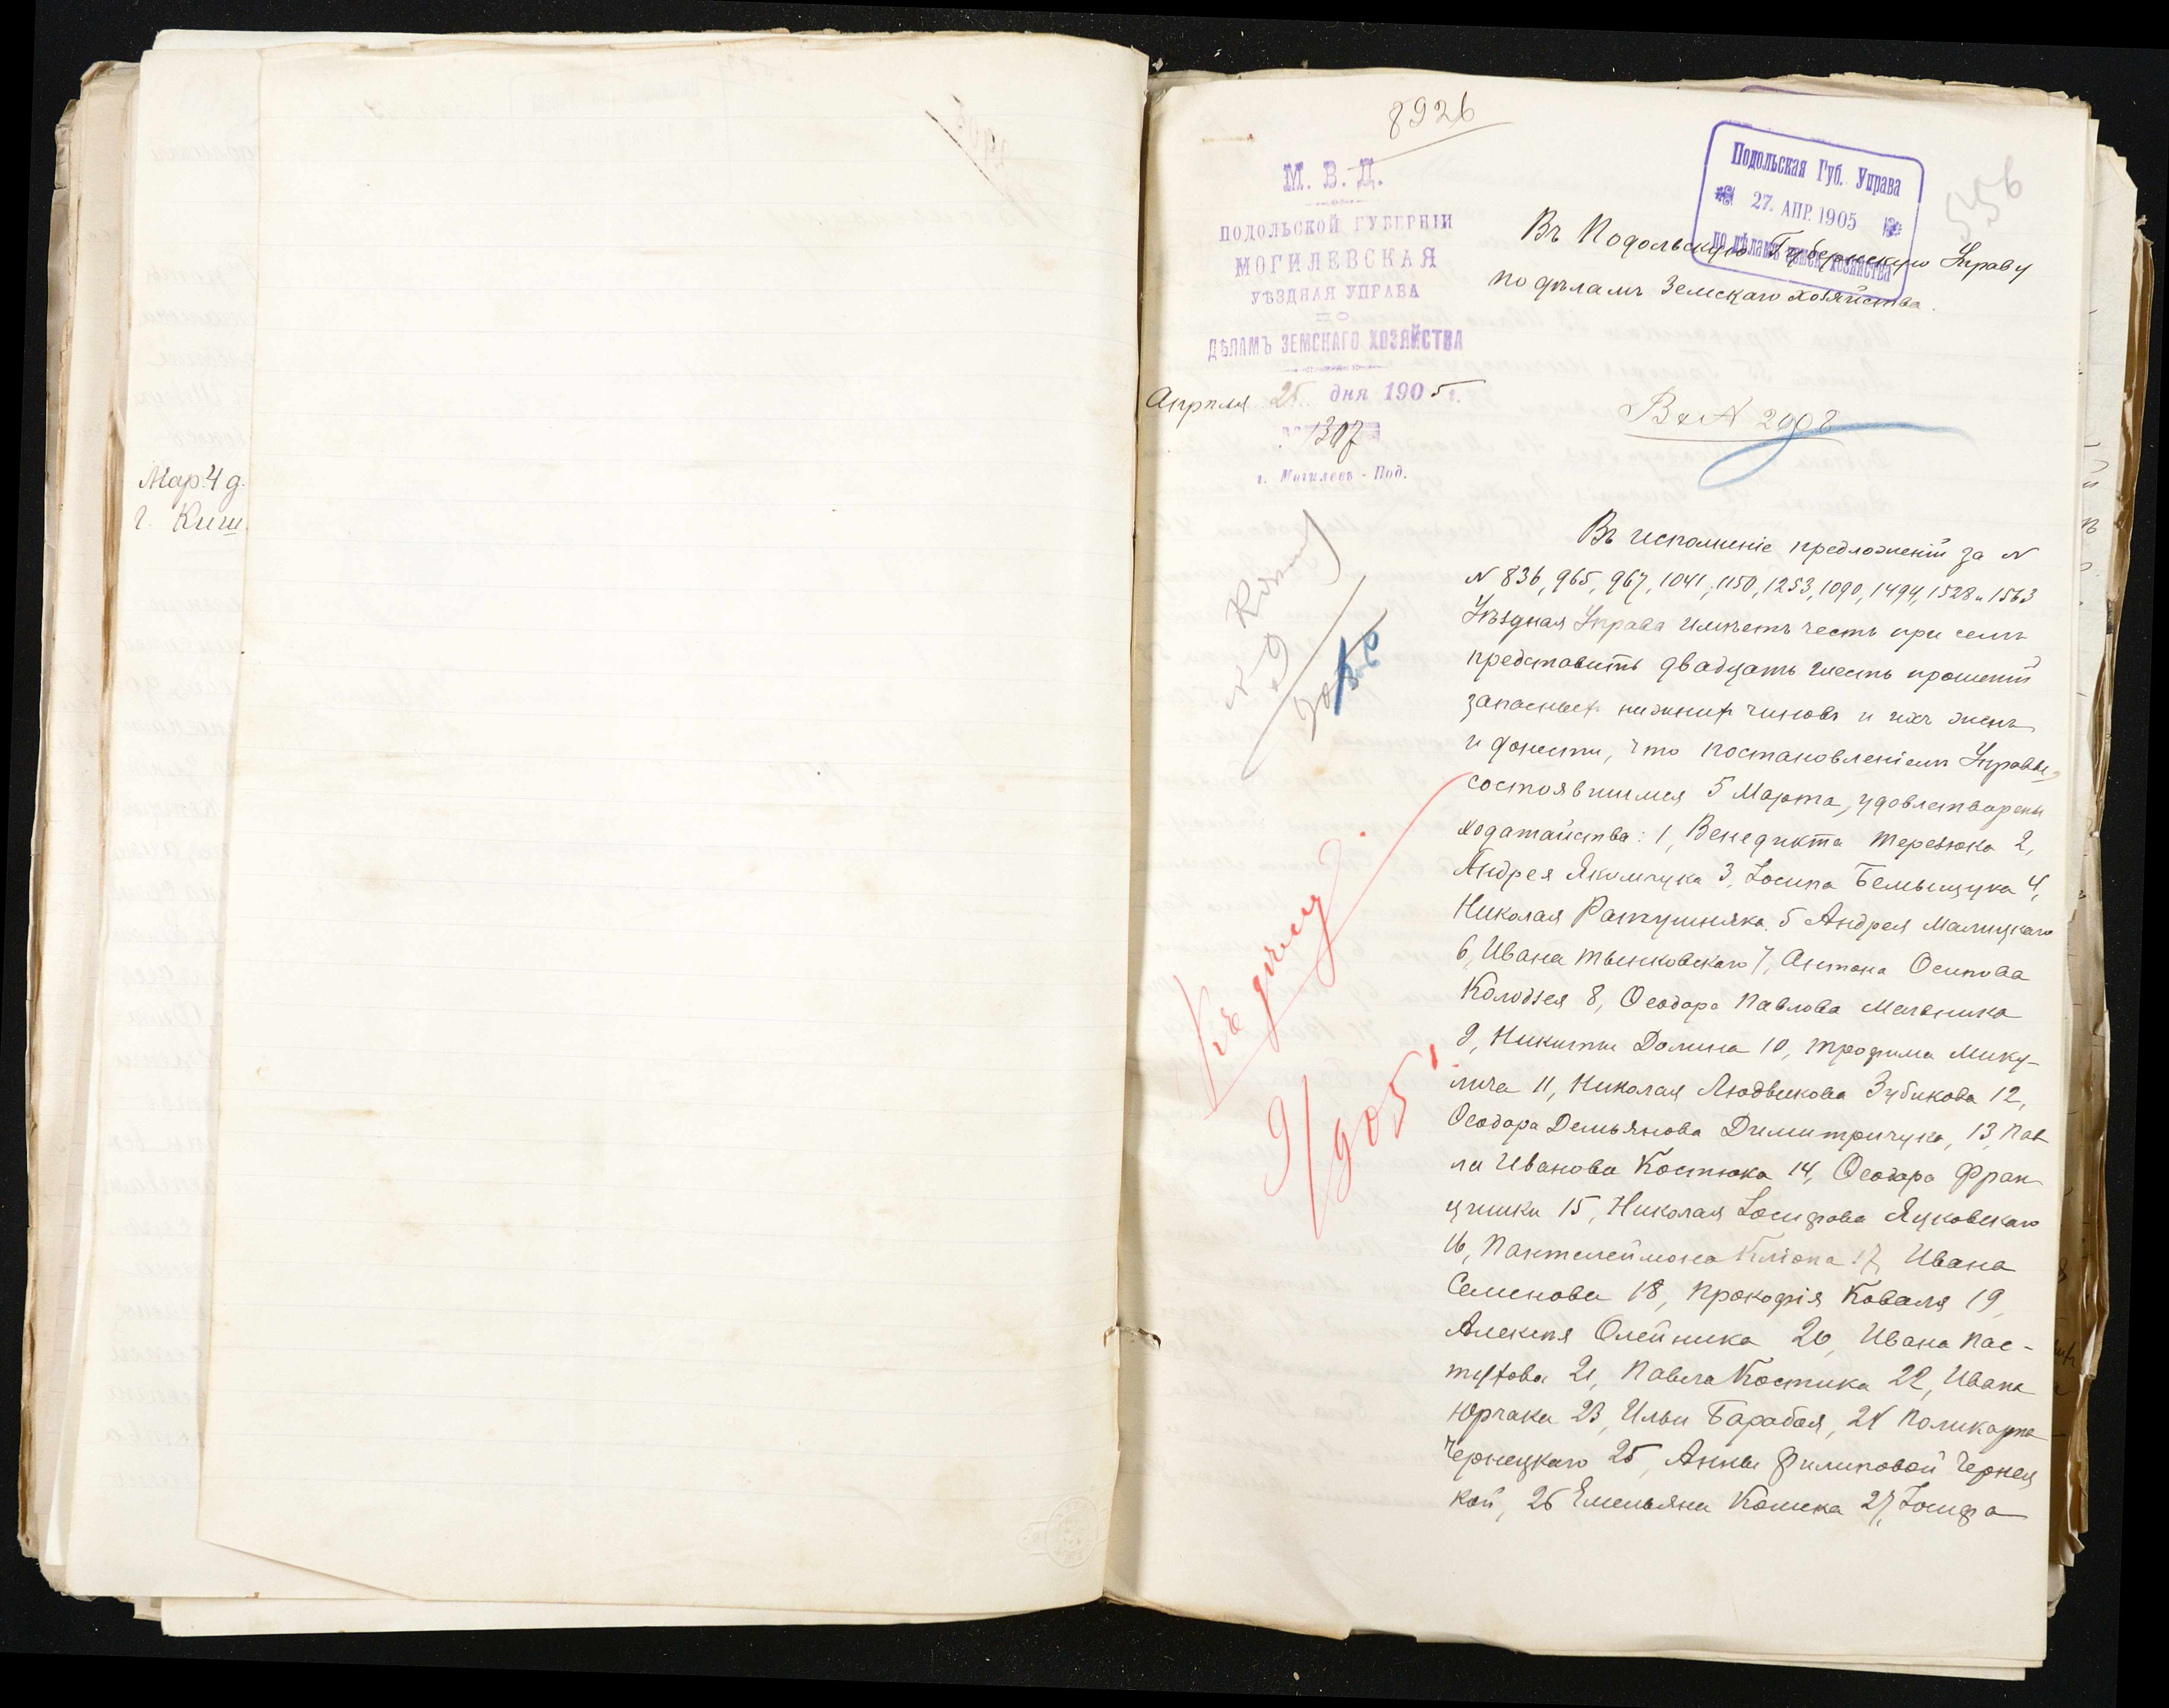 Мар. 4 д.
г. Киш.
8926
М. В. Д.
ПОДОЛЬСКОЙ ГУБЕРНІИ
МОГИЛЕВСКАЯ
УѢЗДНАЯ УПРАВА
ПО
ДѢЛАМЪ ЗЕМСКАГО ХОЗЯЙСТВА
Апрѣля 25 дня 1905 г.
1307
г. Могилевъ - Под.
Подольская Губ. Управа
27. АПР. 1905
по дѣламъ земск. хозяйства
556
Въ Подольскую Губернскую Управу
по дѣламъ Земскаго хозяйства.
Вх N 2998
Къ дѣлу
9/905
Въ исполненіе предложеній за N
N 836, 965, 967, 1041, 1150, 1253, 1090, 1494, 1528 и 1563
Уѣздная Управа имѣетъ честь при семъ
представить двадцать шесть прошеній
запасныхъ нижнихъ чиновъ и ихъ женъ
и донести, что постановленіемъ Управы,
состоявшимся 5 Марта, удовлетворены
ходатайства: 1, Венедикта Терезюка 2,
Андрея Якимчука 3, Іосипа 4,
Николая Ратушняка, 5 Андрея Малицкаго
6, Ивана Тынковскаго 7, Антона Осипова
Колодзея 8, Ѳеодора Павлова Мельника
9, Никиты Долина 10, Трофима Мику-
лича 11, Николая Людвикова Зубикова 12,
Ѳеодора Демьянова Димитричука, 13, Пав
ла Иванова Костюка 14, Ѳеодора Фран
цишки 15, Николая Іосифова Яцковскаго
16, Пантелеймона 17, Ивана
Семенова 18, Прокофія Коваля 19,
Алексѣя Олейника 20, Ивана Пас-
тухова 21, Павла Костика 22, Ивана
Юрчака 23, Ильи Барабоя, 24 Поликарпа
Чернецкаго 25, Анны Филиповой Чернец
кой, 26 Емельяна 27, Іосифа